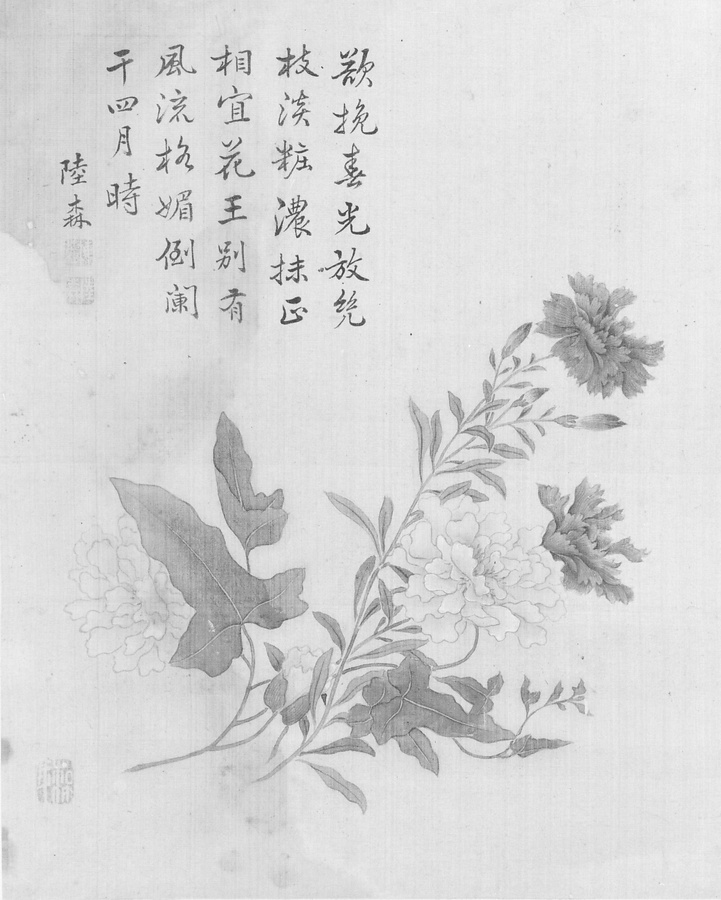 欲挽春光放兠
枝淡粧濃抹正
相宜花王別有
風流格媚倒闌
干四月時
陸森